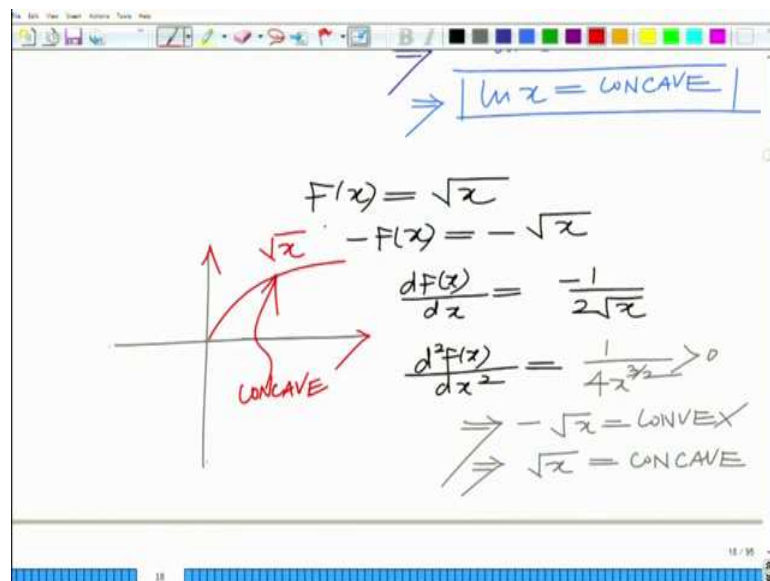 File Edit View Insert Actions Tools Help
⇒ | ln x = CONCAVE |
F(x) = √x
-F(x) = - √x
√x
dF(x)/dx = -1/(2√x)
d²F(x)/dx² = 1/(4x^(3/2)) > 0
CONCAVE
⇒ - √x = CONVEX
⇒ √x = CONCAVE
18 / 95
18